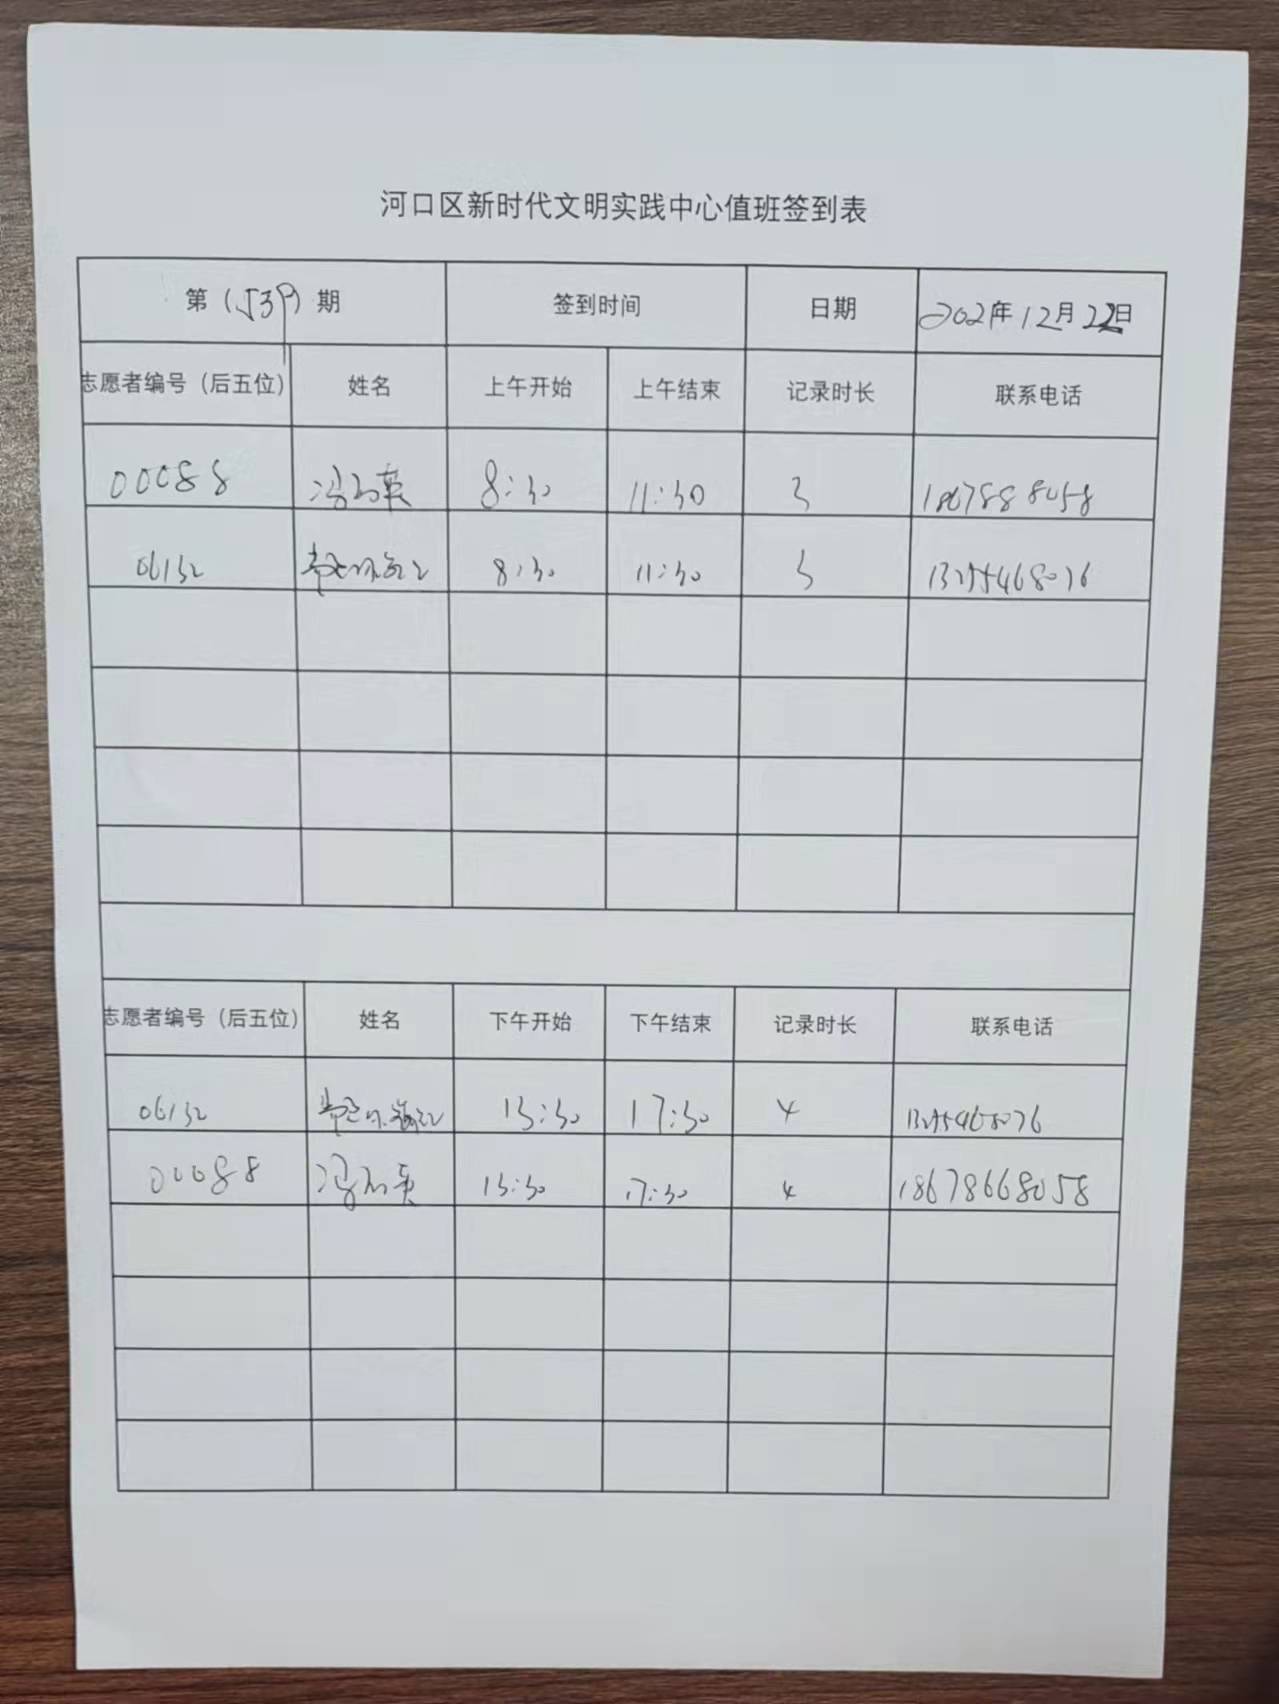 河口区新时代文明实践中心值班签到表
第（539）期 签到时间 日期 2021年12月22日
志愿者编号（后五位） 姓名 上午开始 上午结束 记录时长 联系电话
00088 8:30 11:30 3
06132 8:30 11:30 3
志愿者编号（后五位） 姓名 下午开始 下午结束 记录时长 联系电话
06132 13:30 17:30 4
00088 13:30 17:30 4 18678668058